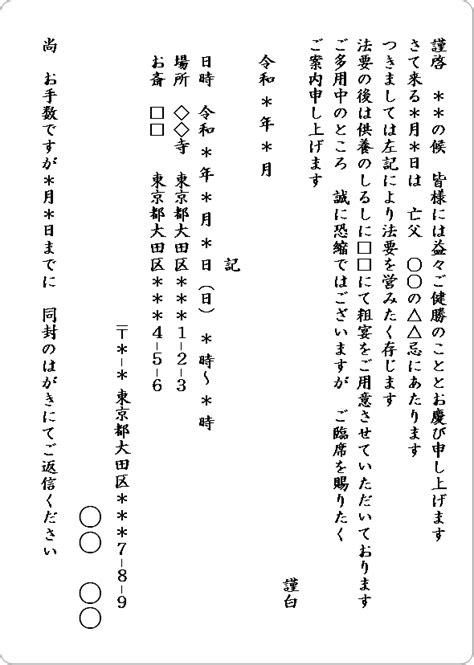 謹啓　＊＊の候　皆様には益々ご健勝のこととお慶び申し上げます
さて来る＊月＊日は　亡父　〇〇の△△忌にあたります
つきましては左記により法要を営みたく存じます
法要の後は供養のしるしに□□にて粗宴をご用意させていただいております
ご多用中のところ　誠に恐縮ではございますが　ご臨席を賜りたく
ご案内申し上げます
謹白
令和＊年＊月
記
日時　令和＊年＊月＊日（日）＊時〜＊時
場所　◇◇寺　東京都大田区＊＊＊1-2-3
お斎　□□　東京都大田区＊＊＊4-5-6
〒＊-＊ 東京都大田区＊＊＊7-8-9
〇〇　〇〇
尚　お手数ですが＊月＊日までに　同封のはがきにてご返信ください